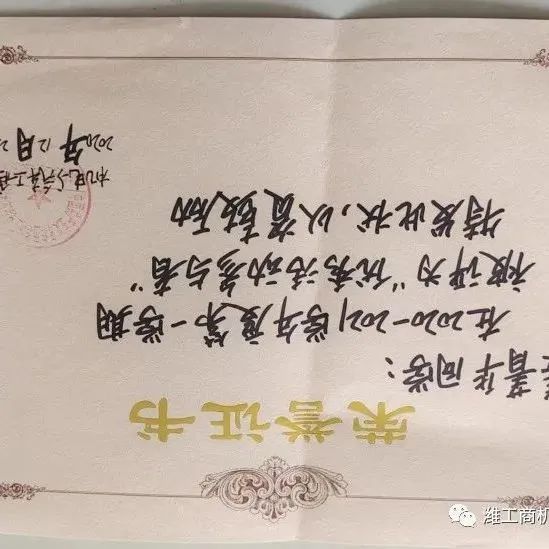 荣誉证书
菁华同学：
在2020-2021学年度第一学期
被评为“优秀活动参与者”
特发此状，以资鼓励
机电与汽车工程
2020年12月2
潍工商机